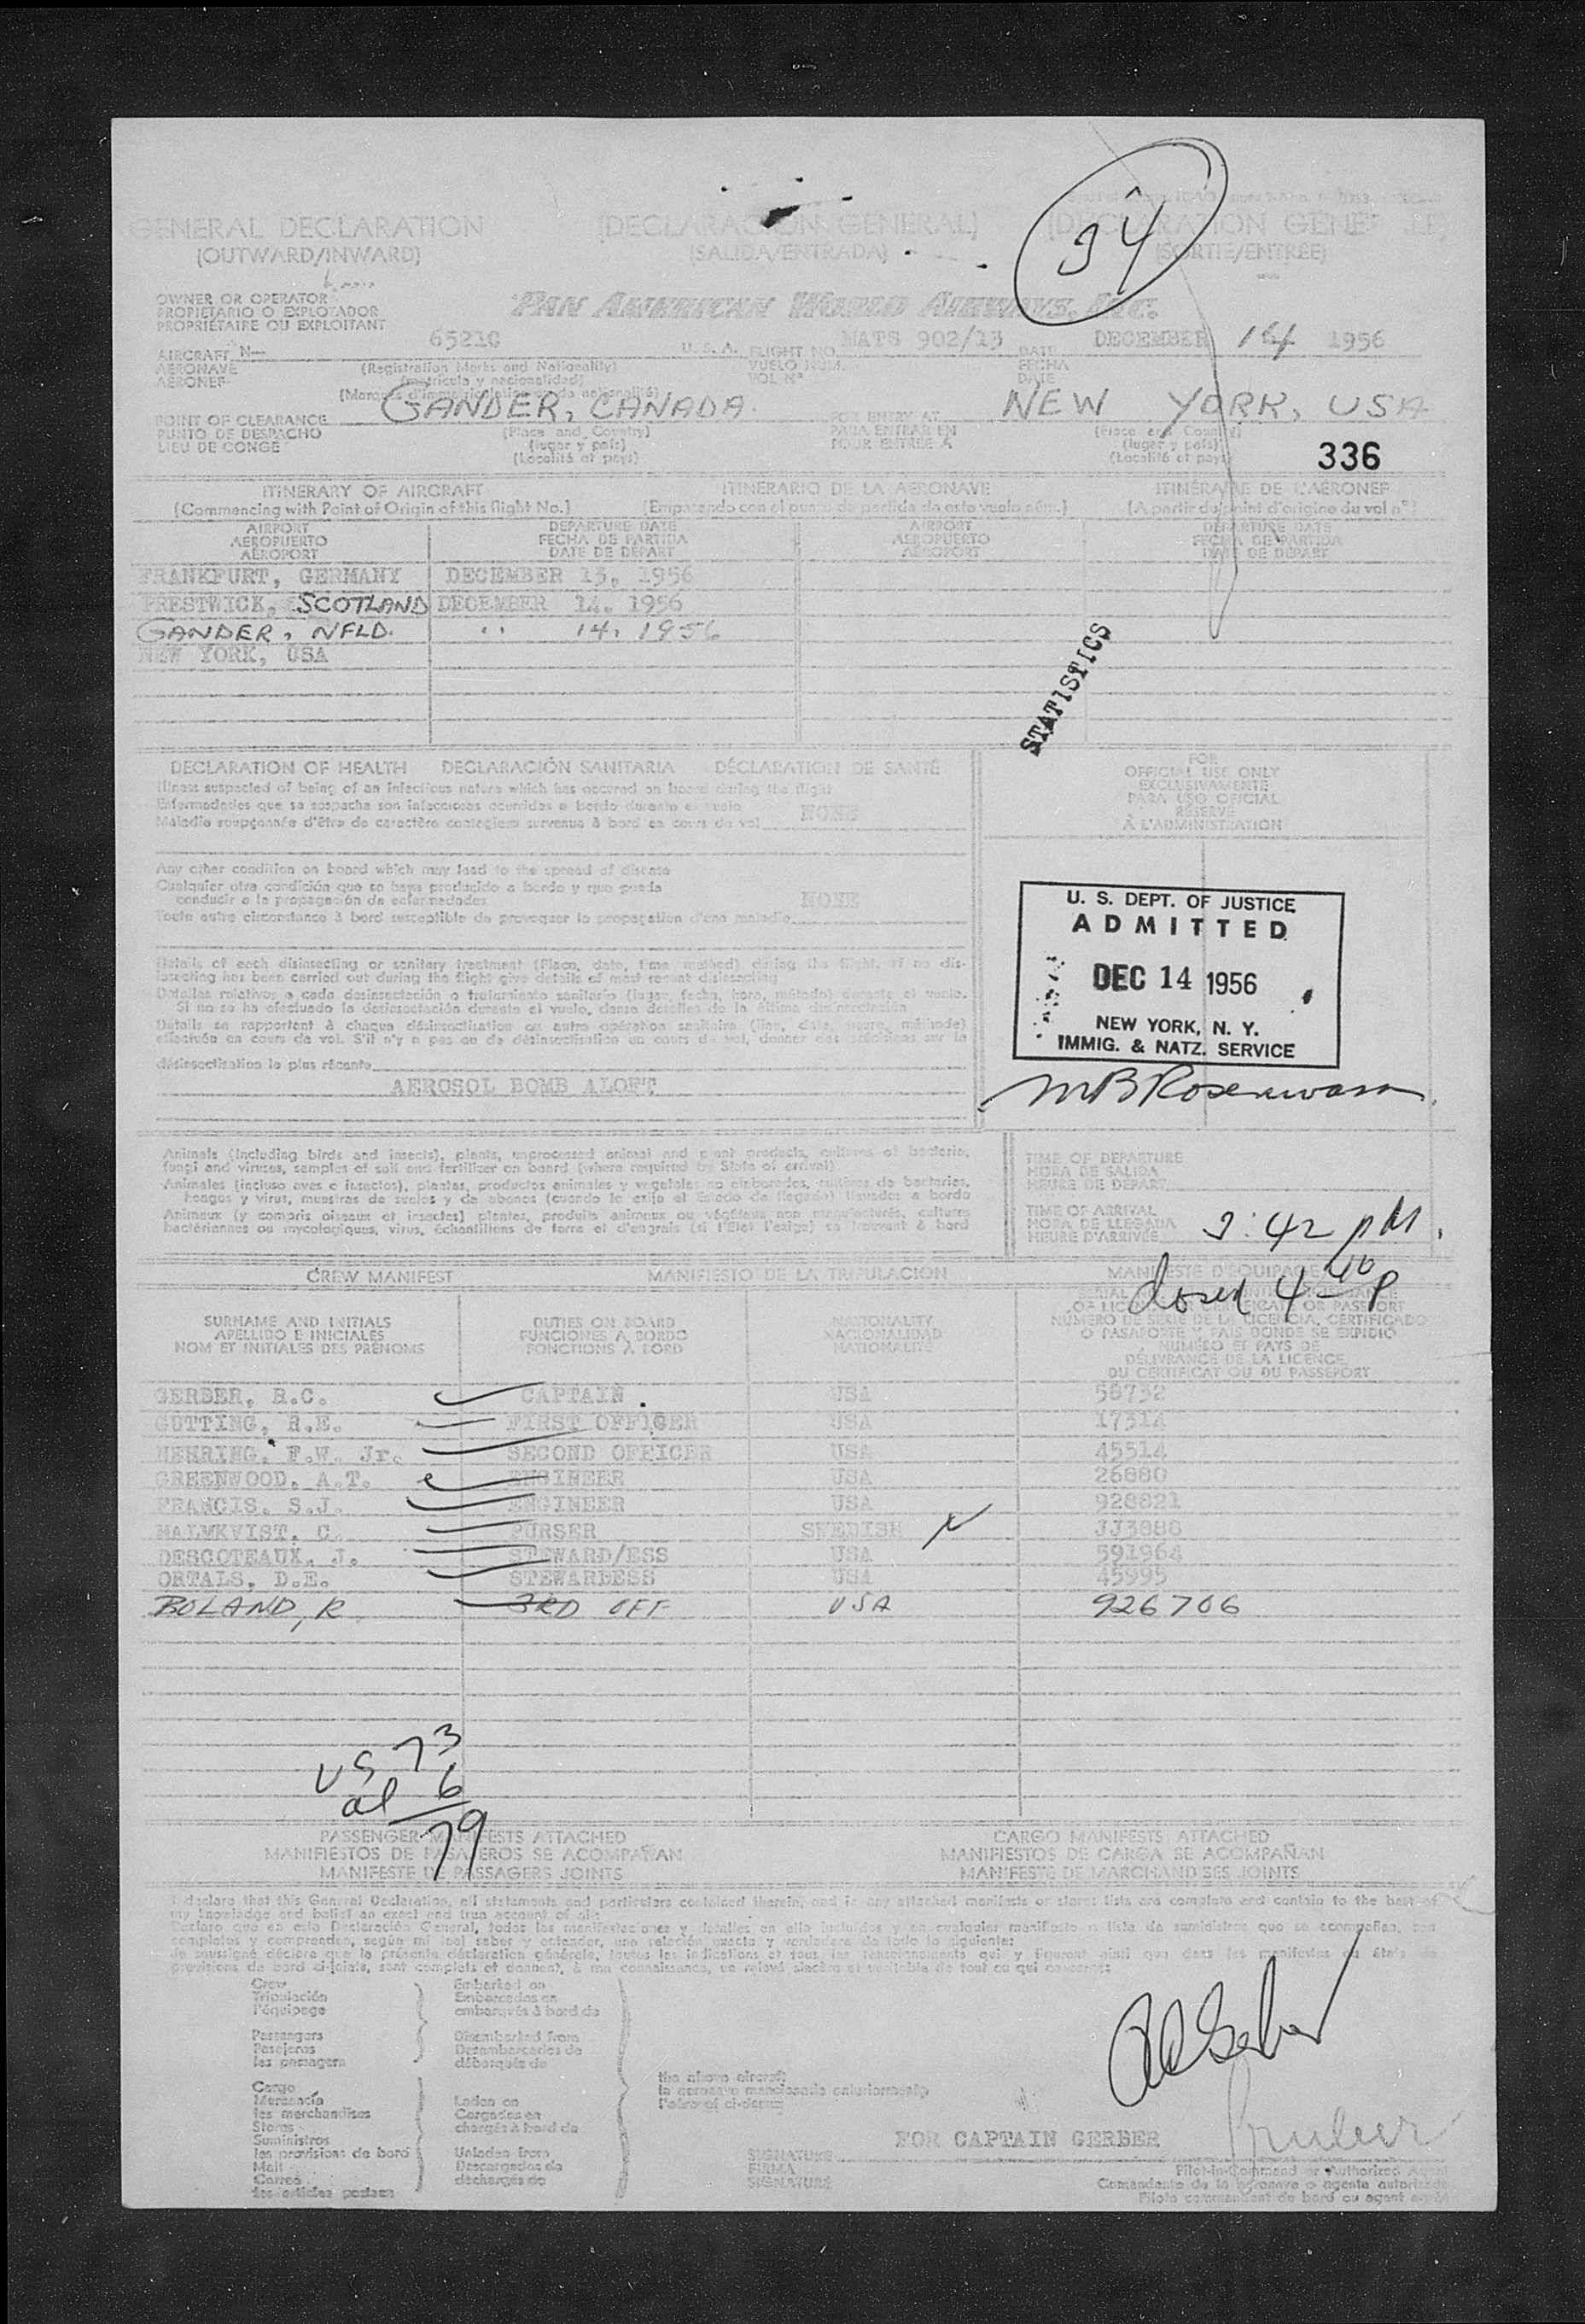 34
GENERAL DECLARATION
(OUTWARD/INWARD)
(DECLARACION GENERAL)
(SALIDA/ENTRADA)
(SORTIE/ENTRÉE)
OWNER OR OPERATOR
PROPIETARIO O EXPLOTADOR
PROPRIÉTAIRE OU EXPLOITANT
PAN AMERICAN WORLD AIRWAYS, INC.
AIRCRAFT N— 6521C U. S. A. FLIGHT NO. MATS 902/13 DATE DECEMBER 14 1956
AERONAVE (Registration Marks and Nationality) VUELO NUM. FECHA
AÉRONEF (matrícula y nacionalidad) VOL Nº DATE
POINT OF CLEARANCE GANDER, CANADA. FOR ENTRY AT NEW YORK, USA
PUNTO DE DESPACHO (Place and Country) PARA ENTRAR EN (Place and Country)
LIEU DE CONGÉ (lugar y país) POUR ENTRÉE À (lugar y país)
(Localité et pays) (Localité et pays)
336
ITINERARY OF AIRCRAFT ITINERARIO DE LA AERONAVE ITINÉRAIRE DE L'AÉRONEF
(Commencing with Point of Origin of this flight No.) (Empezando con el punto de partida de este vuelo núm.) (A partir du point d'origine du vol nº)
AIRPORT DEPARTURE DATE AIRPORT DEPARTURE DATE
AEROPUERTO FECHA DE PARTIDA AEROPUERTO FECHA DE PARTIDA
AÉROPORT DATE DE DÉPART AÉROPORT DATE DE DÉPART
FRANKFURT, GERMANY DECEMBER 13, 1956
PRESTWICK, SCOTLAND DECEMBER 14. 1956
GANDER, NFLD. " 14, 1956
NEW YORK, USA
STATISTICS
DECLARATION OF HEALTH DECLARACIÓN SANITARIA DÉCLARATION DE SANTÉ
Illness suspected of being of an infectious nature which has occured on board during the flight
Enfermedades que se sospecha son infecciosas ocurridas a bordo durante el vuelo
Maladie soupçonnée d'être de caractère contagieux survenue à bord en cours de vol NONE
Any other condition on board which may lead to the spread of disease
Cualquier otra condición que se haya producido a bordo y que pueda
conducir a la propagación de enfermedades
Toute autre circonstance à bord susceptible de provoquer la propagation d'une maladie NONE
Details of each disinsecting or sanitary treatment (Place, date, time method) during the flight. If no dis-
insecting has been carried out during the flight give details of most recent disinsecting
Detalles relativos a cada desinsectación o tratamiento sanitario (lugar, fecha, hora, método) durante el vuelo.
Si no se ha efectuado la desinsectación durante el vuelo, dense detalles de la última desinsectación
Détails se rapportent à chaque désinsectisation ou autre opération sanitaire (lieu, date, heure, méthode)
effectuée en cours de vol. S'il n'y a pas eu de désinsectisation en cours de vol, donner des précisions sur la
désinsectisation la plus récente
AEROSOL BOMB ALOFT
FOR
OFFICIAL USE ONLY
EXCLUSIVAMENTE
PARA USO OFICIAL
RÉSERVÉ
À L'ADMINISTRATION
U. S. DEPT. OF JUSTICE
ADMITTED
DEC 14 1956
NEW YORK, N. Y.
IMMIG. & NATZ. SERVICE
Animals (including birds and insects), plants, unprocessed animal and plant products, cultures of bacteria,
fungi and viruses, samples of soil and fertilizer on board (where required by State of arrival)
Animales (incluso aves e insectos), plantas, productos animales y vegetales no elaborados, cultivos de bacterias,
hongos y virus, muestras de suelos y de abonos (cuando lo exija el Estado de llegada) llevados a bordo
Animaux (y compris oiseaux et insectes) plantes, produits animaux ou végétaux non manufacturés, cultures
bactériennes ou mycologiques, virus, échantillons de terre et d'engrais (si l'Etat l'exige) se trouvant à bord
TIME OF DEPARTURE
HORA DE SALIDA
HEURE DE DÉPART
TIME OF ARRIVAL
HORA DE LLEGADA
HEURE D'ARRIVÉE 3:42 PM.
closed 4-40 P
CREW MANIFEST MANIFIESTO DE LA TRIPULACION MANIFESTE D'EQUIPAGE
SURNAME AND INITIALS DUTIES ON BOARD NATIONALITY
APELLIDO E INICIALES FUNCIONES A BORDO NACIONALIDAD
NOM ET INITIALES DES PRÉNOMS FONCTIONS À BORD NATIONALITÉ
NUMERO DE SERIE DE LA LICENCIA, CERTIFICADO
O PASAPORTE Y PAIS DONDE SE EXPIDIÓ
NUMÉRO ET PAYS DE
DÉLIVRANCE DE LA LICENCE
DU CERTIFICAT OU DU PASSEPORT
GERBER, R.C. CAPTAIN USA 58732
GUTTING, R.E. FIRST OFFICER USA 17314
MEHRING, F.W. Jr. SECOND OFFICER USA 45514
GREENWOOD, A.T. ENGINEER USA 26880
FRANCIS, S.J. ENGINEER USA 928821
MALMKVIST, C. PURSER SWEDISH JJ3888
DESCOTEAUX, J. STEWARD/ESS USA 591964
ORTALS, D.E. STEWARDESS USA 45995
BOLAND, R 3RD OFF USA 926706
US 73
al 6
79
PASSENGER MANIFESTS ATTACHED CARGO MANIFESTS ATTACHED
MANIFIESTOS DE PASAJEROS SE ACOMPAÑAN MANIFIESTOS DE CARGA SE ACOMPAÑAN
MANIFESTE DE PASSAGERS JOINTS MANIFESTE DE MARCHANDISES JOINTS
I declare that this General Declaration, all statements and particulars contained therein, and in any attached manifests or stores lists are complete and contain to the best of
my knowledge and belief an exact and true account of all:
Declaro que en esta Declaración General, todas las manifestaciones y detalles en ella incluidos y en cualquier manifiesto o lista de suministros que se acompañan, son
completos y comprenden, según mi leal saber y entender, una relación exacta y verdadera de todo lo siguiente:
Je soussigné déclare que la présente déclaration générale, toutes les indications et tous les renseignements qui y figurent ainsi que dans les manifestes ou états de
provisions de bord ci-joints, sont complets et donnent, à ma connaissance, un relevé sincère et véritable de tout ce qui concerne:
Crew Embarked on
Tripulación Embarcados en
l'équipage embarqués à bord de
Passengers Disembarked from
Pasajeros Desembarcados de
les passagers débarqués de
Cargo
Mercancía Laden on
les merchandises Cargados en
Stores chargés à bord de
Suministros
les provisions de bord Unladen from
Mail Descargados de
Correo déchargés de
les articles postaux
the above aircraft
la aeronave mencionada anteriormente
l'aéronef ci-dessus
FOR CAPTAIN GERBER
SIGNATURE
FIRMA
SIGNATURE
Pilot-in-Command or Authorized Agent
Comandante de la aeronave o agente autorizado
Pilote commandant de bord ou agent